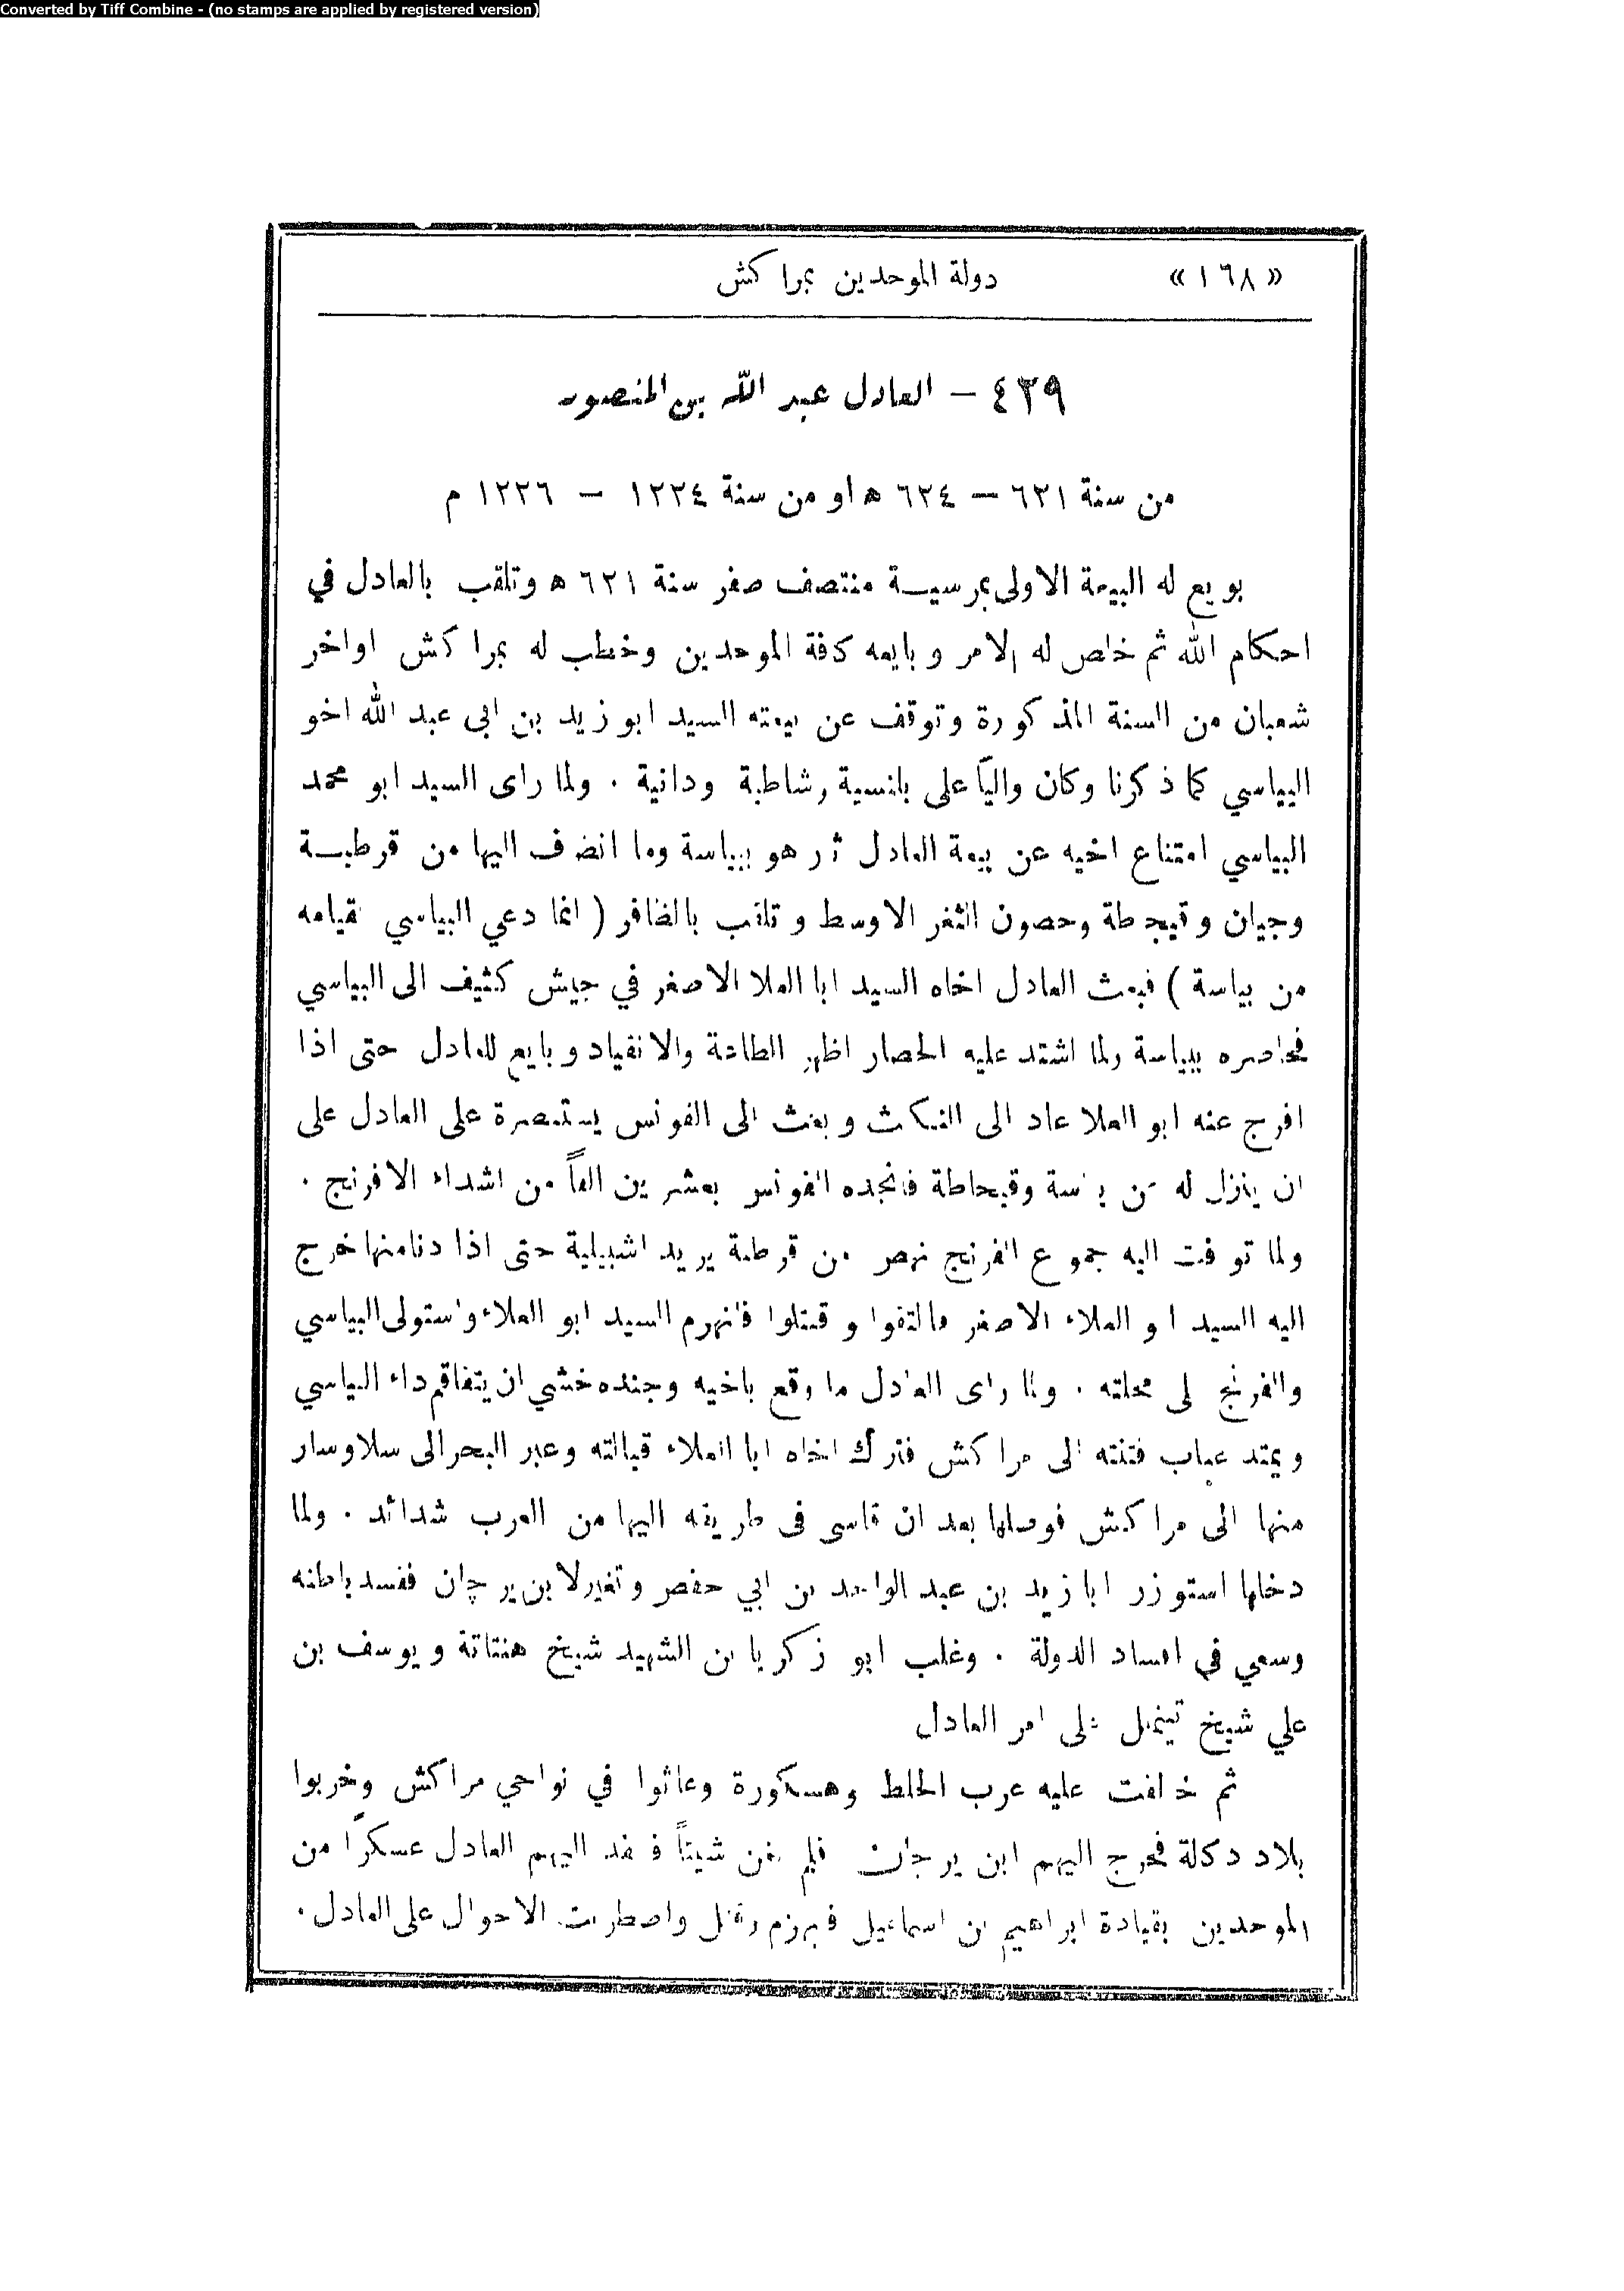 Converted by Tiff Combine - (no stamps are applied by registered version)
«١٦٨» دولة الموحدين بمراكش
٤٣٩ – العادل عبد الله بن المنصور
من سنة ٦٢١ – ٦٢٤ ه او من سنة ١٢٢٤ – ١٢٢٦ م
بويع له البيعة الاولى بمرسيـة منتصف صفر سنة ٦٢١ ه وتلقب بالعادل في
احكام الله ثم خلص له الامر وبايعه كافة الموحدين وخطب له بمراكش اواخر
شعبان من السنة المذكورة وتوقف عن بيعته السيد ابو زيد بن ابى عبد الله اخو
البياسي كما ذكرنا وكان واليًا على بلنسية وشاطبة ودانية . ولما راى السيد ابو محمد
البياسي امتناع اخيه عن بيعة العادل ثار هو ببياسة وما انضاف اليها من قرطبـة
وجيان وقيجطة وحصون الثغر الاوسط وتلقب بالظافر ( انما دعي البياسي لقيامه
من بياسة ) فبعث العادل اخاه السيد ابا العلا الاصغر في جيش كثيف الى البياسي
فحاصره ببياسة ولما اشتد عليه الحصار اظهر الطاعة والانقياد وبايع للعادل حتى اذا
افرج عنه ابو العلا عاد الى النكث وبعث الى الفونس يستنصرة على العادل على
ان ينزل له عن بياسة وقيحاطة فانجده الفونس بعشرين الفاً من اشداء الافرنج .
ولما توفت اليه جموع الفرنج نهض من قرطبة يريد اشبيلية حتى اذا دنا منها خرج
اليه السيد ابو العلاء الاصغر فالتقوا وقتتلوا فانهزم السيد ابو العلاء واستولى البياسي
والفرنج على محلته . ولما راى العادل ما وقع باخيه وجنده خشي ان يتفاقم داء البياسي
ويمتد عباب فتنته الى مراكش فترك اخاه ابا العلاء قبالته وعبر البحر الى سلا وسار
منها الى مراكش فوصلها بعد ان قاسى في طريقه اليها من العرب شدائد . ولما
دخلها استوزر ابا زيد بن عبد الواحد بن ابي حفص وتغير لابن يرجان ففسد باطنه
وسعى في افساد الدولة . وغلب ابو زكريا بن الشهيد شيخ هنتاتة ويوسف بن
علي شيخ تينملل على امر العادل
ثم خالفت عليه عرب الخلط وهسكورة وعاثوا في نواحي مراكش وخربوا
بلاد دكالة فخرج اليهم ابن يرجان فلم يغن شيئاً فانفذ اليهم العادل عسكرًا من
الموحدين بقيادة ابراهيم بن اسماعيل فهزم وقتل واضطربت الاحوال على العادل .